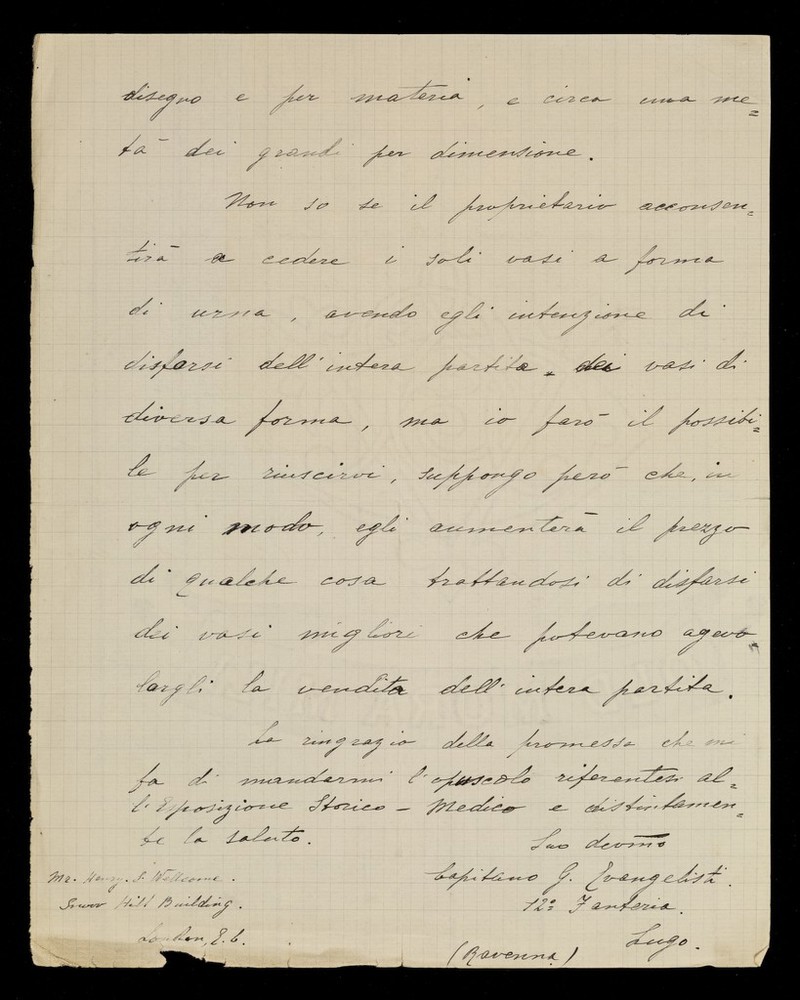 disegno e per materia, e circa una me=
tà dei grandi per dimensione.
Non so se il proprietario acconsen=
tirà a cedere i soli vasi a forma
di urna, avendo egli intenzione di
disfarsi dell'intera partita, dei vasi di
diversa forma, ma io farò il possibi=
le per riuscirvi, suppongo però che, in
ogni modo, egli aumenterà il prezzo
di qualche cosa trattandosi di disfarsi
dei vasi migliori che potevano agevo=
largli la vendita dell'intera partita.
La ringrazio della promessa che mi
fa di mandarmi l'opuscolo riferentesi al=
l'Esposizione Storico - Medico e distintamen=
te la saluto.
Suo devmo
Capitano G. Evangelisti.
12º Fanteria.
Lugo.
(Ravenna)
Mr. Henry. S. Wellcome.
Snow Hill Building.
London, E.C.